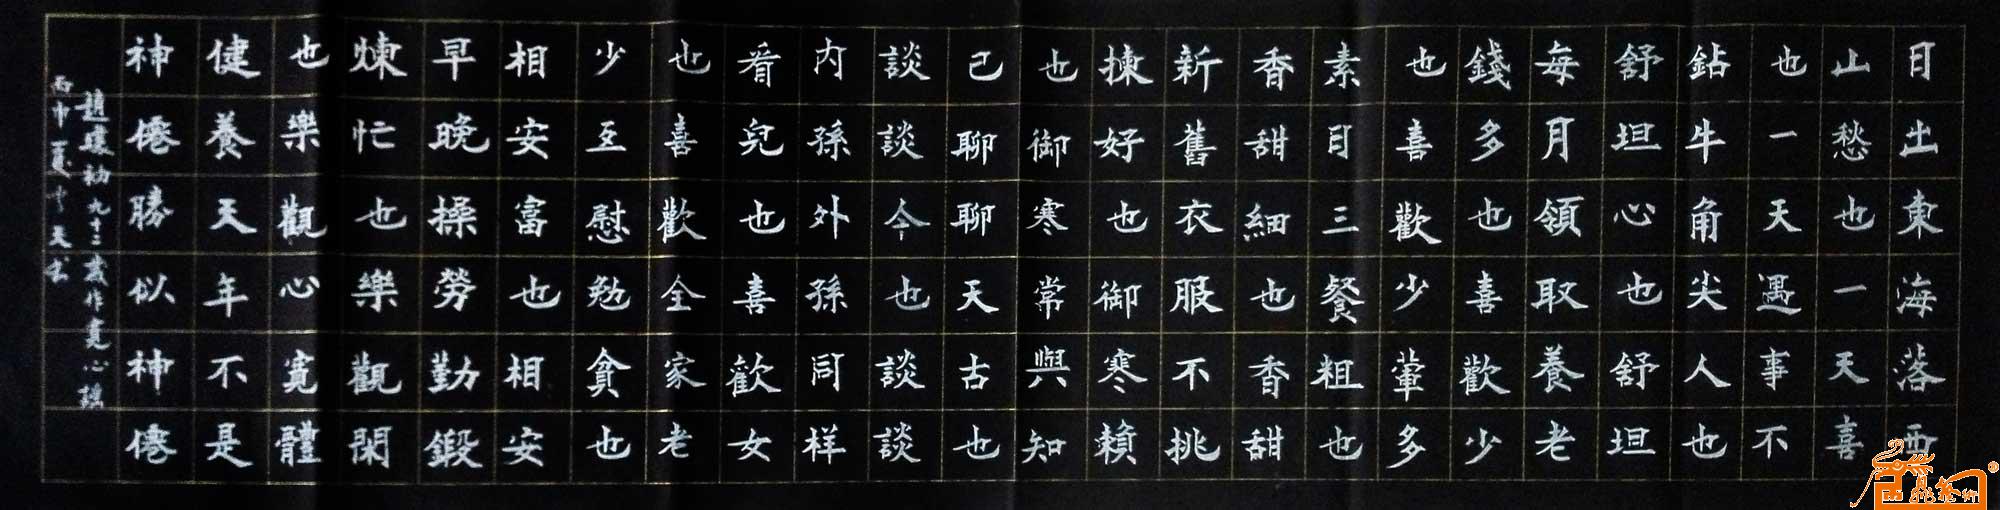 日出東海落西
山愁也一天喜
也一天遇事不
鉆牛角尖人也
舒坦心也舒坦
每月領取養老
錢多也喜歡少
也喜歡少葷多
素日三餐粗也
香甜細也香甜
新舊衣服不挑
揀好也御寒賴
也御寒常與知
己聊聊天古也
談談今也談談
内孫外孫同样
看兒也喜歡女
也喜歡全家老
少互慰勉貧也
相安富也相安
早晚操勞勤鍛
煉忙也樂觀閑
也樂觀心寬體
健養天年不是
神僊勝似神僊
趙璞初九十二歲作寬心謠
丙申夏天书